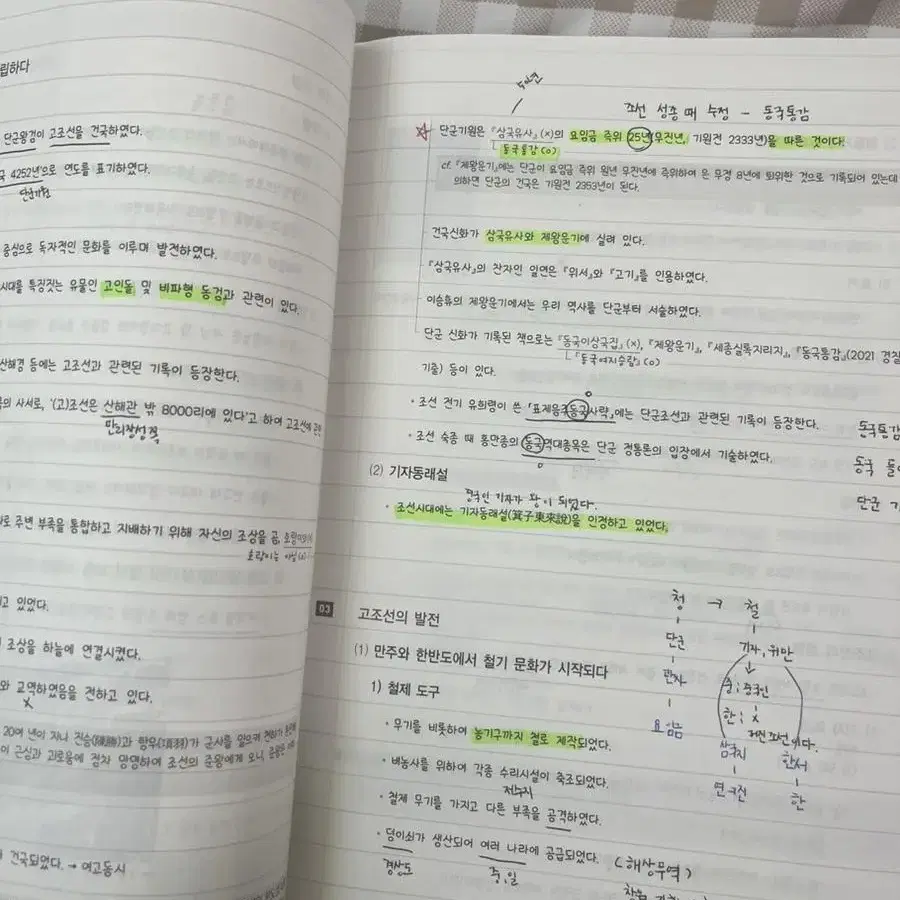 립하다
단군왕검이 고조선을 건국하였다.
4252년'으로 연도를 표기하였다.
단군기원
중심으로 독자적인 문화를 이루며 발전하였다.
시대를 특징짓는 유물인 고인돌 및 비파형 동검과 관련이 있다.
산해경 등에는 고조선과 관련된 기록이 등장한다.
의 사서로, '(고)조선은 산해관 밖 8000리에 있다'고 하여 고조선에 관한
만리장성 쪽
로 주변 부족을 통합하고 지배하기 위해 자신의 조상을 곰, 호랑이
호랑이는
고 있었다.
조상을 하늘에 연결시켰다.
와 교역하였음을 전하고 있다.
X
20여 년이 지나 진승(陳勝)과 항우(項羽)가 군사를 일으켜 천하가
이 근심과 괴로움에 점차 망명하여 조선의 준왕에게 오니, 준왕은
건국되었다. → 여고동시
조선 성종 때 수정 - 동국통감
☆ 단군기원은 『삼국유사』(x)의 요임금 즉위 25년(무진년, 기원전 2333년)을 따른 것이다.
동국통감(o)
cf. 『제왕운기』에는 단군이 요임금 즉위 원년 무진년에 즉위하여 은 무정 8년에 퇴위한 것으로 기록되어 있는데
의하면 단군의 건국은 기원전 2353년이 된다.
건국신화가 삼국유사와 제왕운기에 실려 있다.
『삼국유사』의 찬자인 일연은 『위서』와 『고기』를 인용하였다.
이승휴의 제왕운기에서는 우리 역사를 단군부터 서술하였다.
단군 신화가 기록된 책으로는 『동국이상국집』(x), 『제왕운기』, 『세종실록지리지』, 『동국통감』(2021 경찰
『동국여지승람』(o)
기출) 등이 있다.
• 조선 전기 유희령이 쓴 『표제음주동국사략』에는 단군조선과 관련된 기록이 등장한다.
동국통감
• 조선 숙종 때 홍만종의 동국역대총목은 단군 정통론의 입장에서 기술하였다.
동국
(2) 기자동래설
단군
중국인 기자가 왕이 되었다.
• 조선시대에는 기자동래설(箕子東來說)을 인정하고 있었다.
03 고조선의 발전
(1) 만주와 한반도에서 철기 문화가 시작되다
1) 철제 도구
• 무기를 비롯하여 농기구까지 철로 제작되었다.
• 벼농사를 위하여 각종 수리시설이 축조되었다.
저수지
• 철제 무기를 가지고 다른 부족을 공격하였다.
• 덩이쇠가 생산되어 여러 나라에 공급되었다. (해상무역)
경상도
중, 일
청 → 철
단군
기자, 위만
환자
준 : 중국인
요임금
한 : x
삼국지
한서
연
한